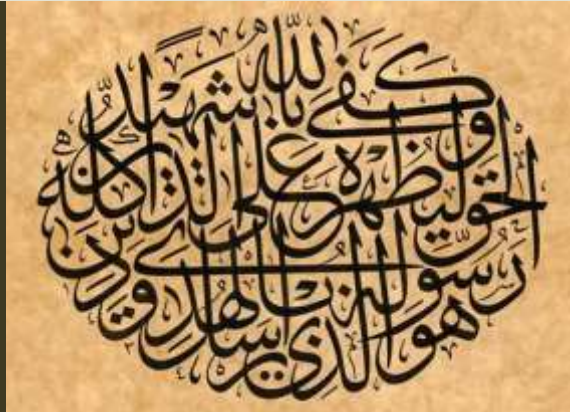 هو الذي ارسل
رسوله بالهدى ودين
الحق ليظهره على الدين كله
وكفى بالله شهيدا